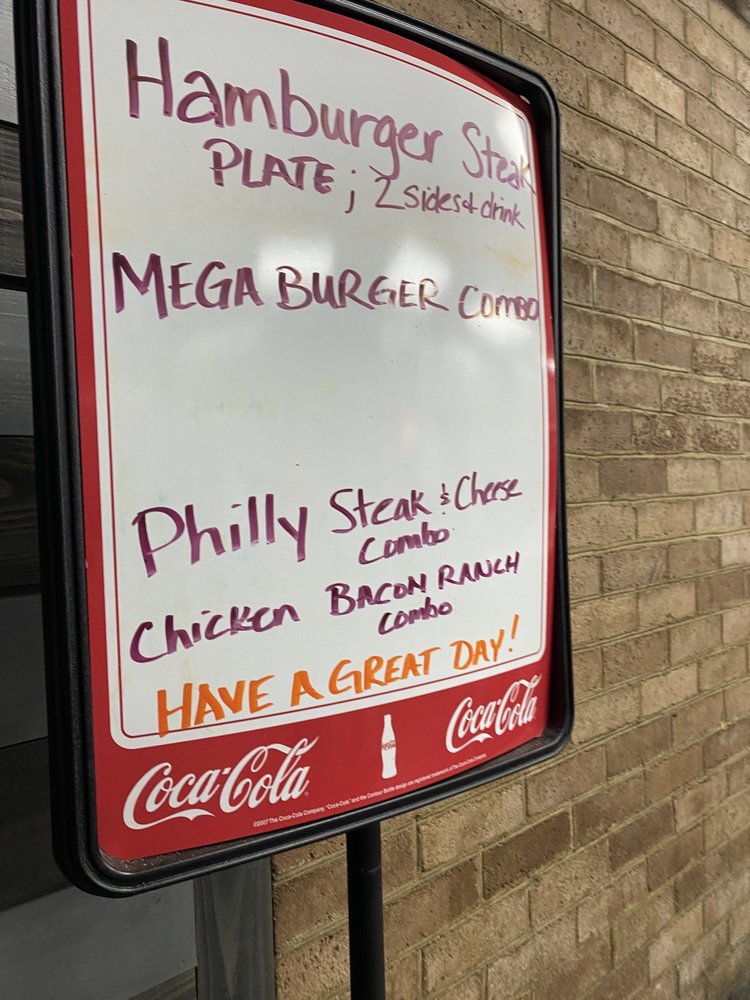 Hamburger Steak
PLATE ; 2 sides & drink
MEGA BURGER Combo
Philly Steak & Cheese
Combo
Chicken BACON RANCH
Combo
HAVE A GREAT DAY!
Coca-Cola
Coca-Cola
©2007 The Coca-Cola Company. "Coca-Cola" and the Contour Bottle design are registered trademarks of The Coca-Cola Company.